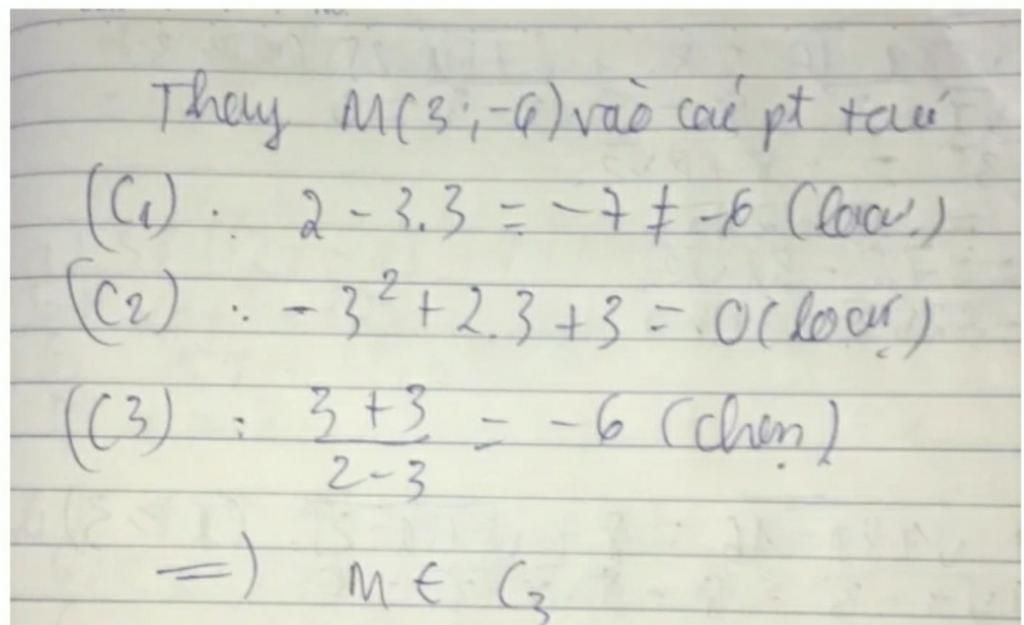 Thay M(3;-6) vào các pt trên
(C1) : 2 - 3.3 = -7 ≠ -6 (loại)
(C2) : -3² + 2.3 + 3 = 0 (loại)
(C3) : (3+3)/(2-3) = -6 (chọn)
=) M ∈ C3